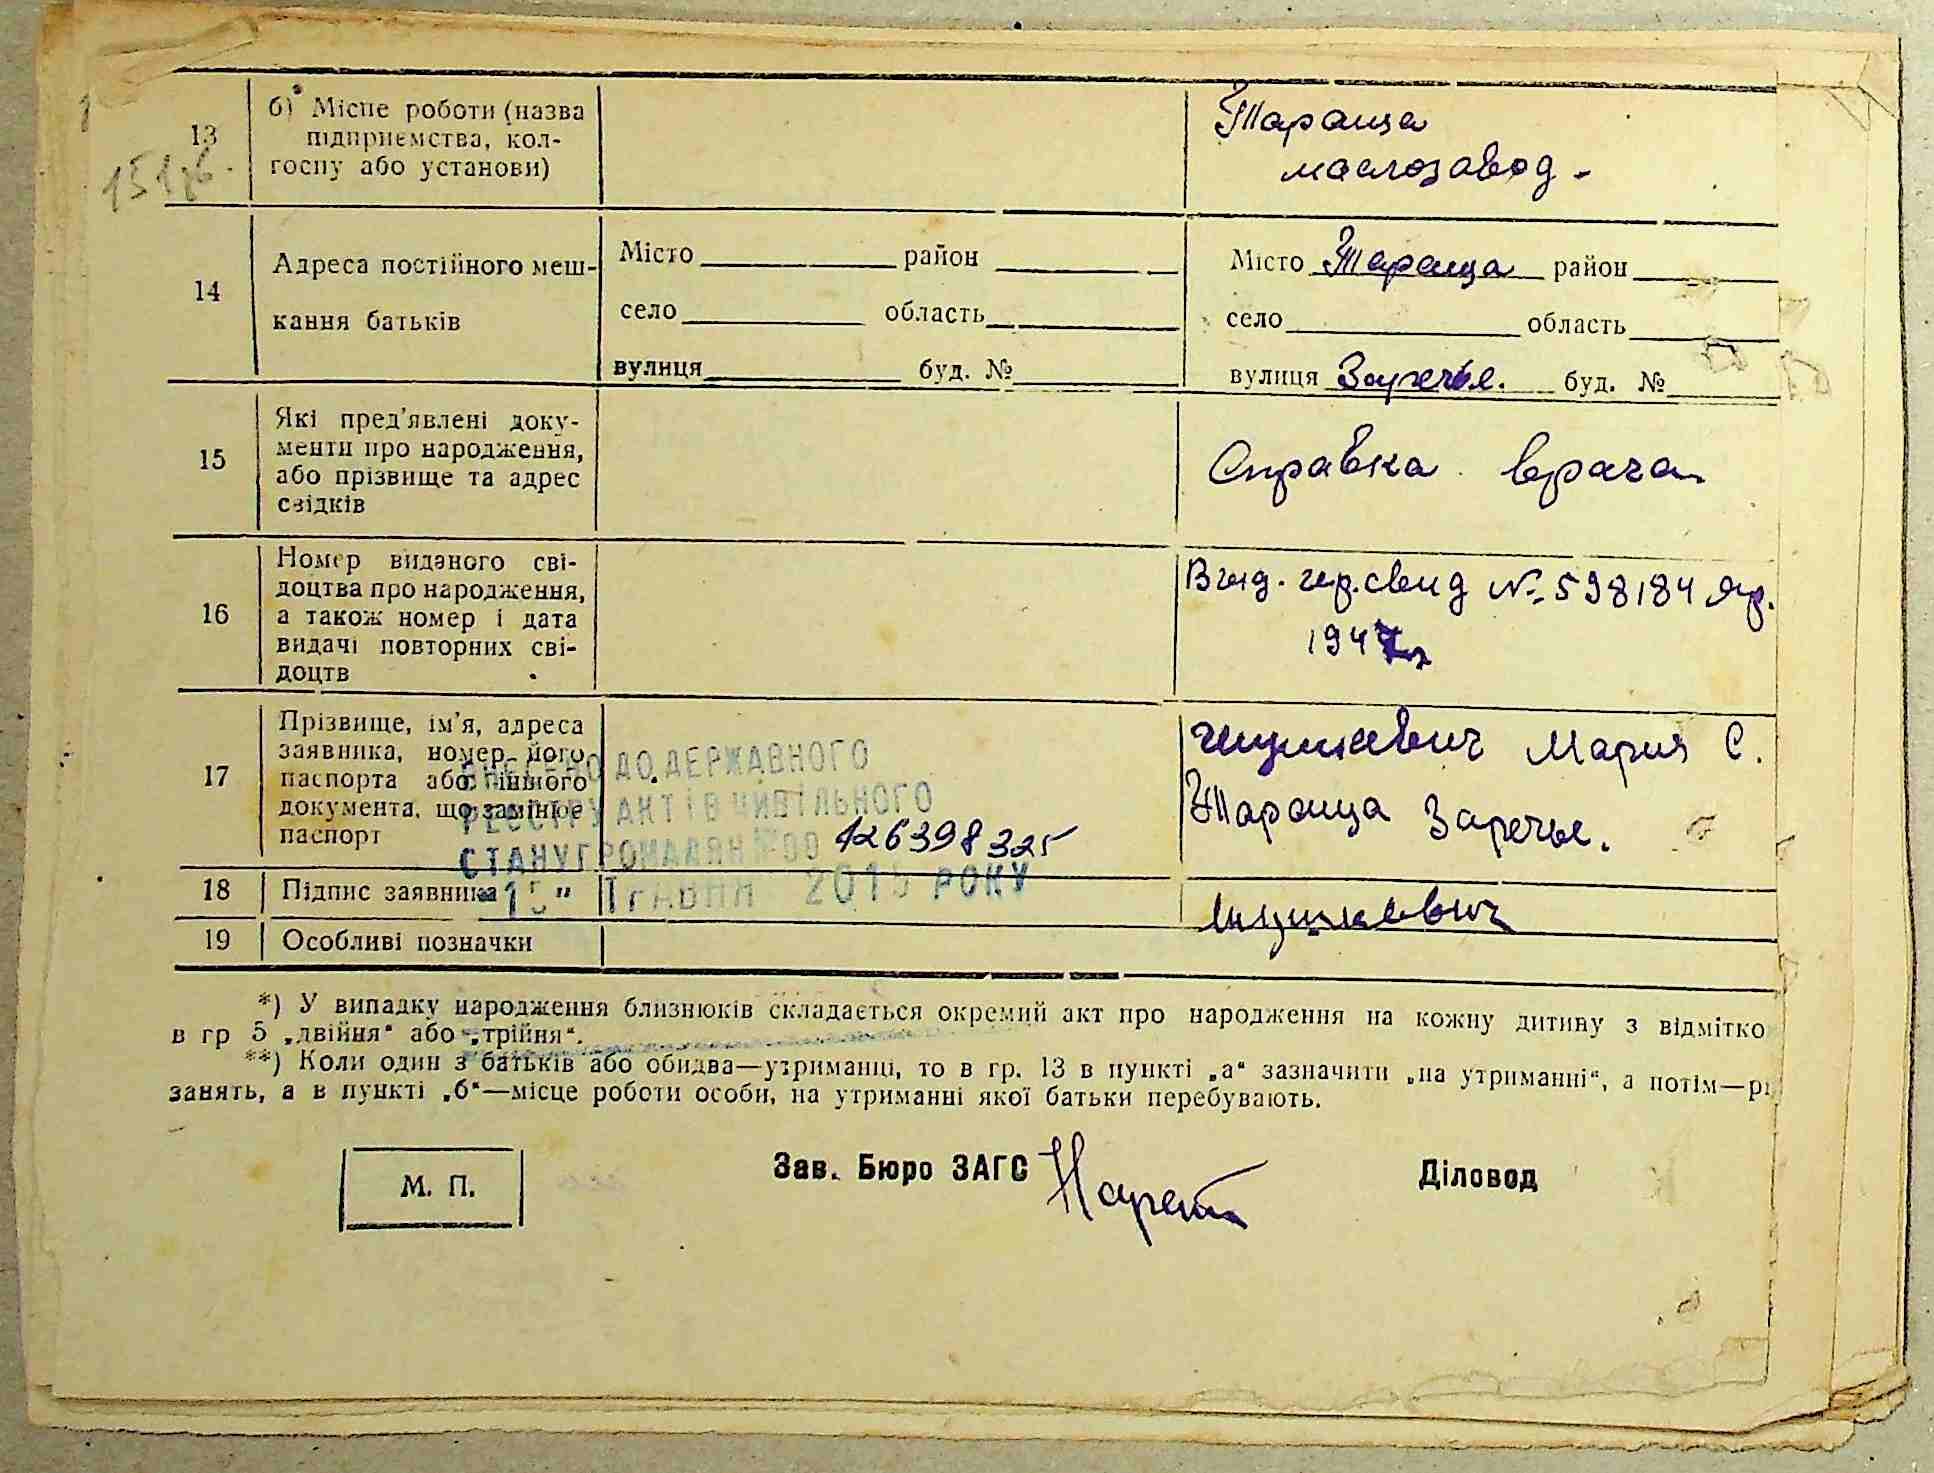 13
б) Місце роботи (назва
підприємства, кол-
госпу або установи)
Тараща
маслозавод.
14
Адреса постійного меш-
кання батьків
Місто район
село область
вулиця буд. №
Місто Тараща район
село область
вулиця Заречье. буд. №
15
Які пред'явлені доку-
менти про народження,
або прізвище та адрес
свідків
Справка врача
16
Номер виданого сві-
доцтва про народження,
а також номер і дата
видачі повторних сві-
доцтв
№ 598184
1947
17
Прізвище, ім'я, адреса
заявника, номер його
паспорта або іншого
документа, що замінює
паспорт
Мария С.
Тараща Заречье.
ВНЕСЕНО ДО ДЕРЖАВНОГО
РЕЄСТРУ АКТІВ ЦИВІЛЬНОГО
СТАНУ ГРОМАДЯН №00 126398325
"15" травня 2015 РОКУ
18
Підпис заявника
19
Особливі позначки
*) У випадку народження близнюків складається окремий акт про народження на кожну дитину з відмітко
в гр 5 „двійня“ або „трійня“.
**) Коли один з батьків або обидва—утриманці, то в гр. 13 в пункті „а“ зазначити „на утриманні“, а потім—рі
занять, а в пункті „б“—місце роботи особи, на утриманні якої батьки перебувають.
М. П.
Зав. Бюро ЗАГС
Діловод